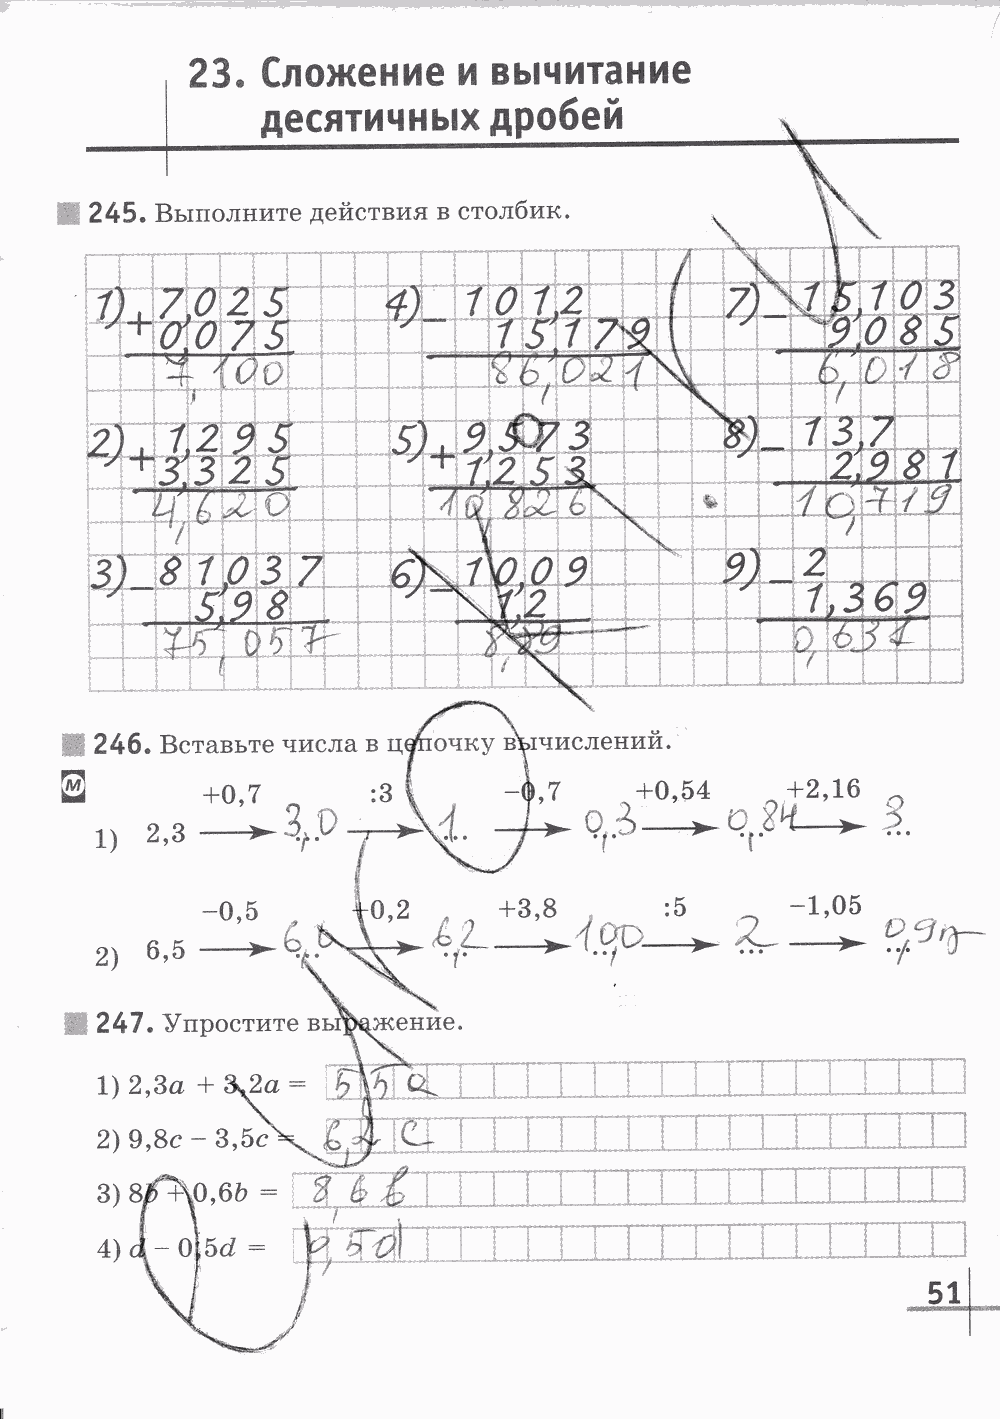 23. Сложение и вычитание
десятичных дробей
245. Выполните действия в столбик.
1) + 7,025
0,075
7,100
4) − 101,2
15,179
86,021
7) − 15,103
9,085
6,018
2) + 1,295
3,325
4,620
5) + 9,573
1,253
10,826
8) − 13,7
2,981
10,719
3) − 81,037
5,98
75,057
6) − 10,09
1,2
8,89
9) − 2
1,369
0,631
246. Вставьте числа в цепочку вычислений.
М
+0,7 :3 −0,7 +0,54 +2,16
1) 2,3 3,0 1 0,3 0,84 3
−0,5 +0,2 +3,8 :5 −1,05
2) 6,5 6,0 6,2 10,0 2
247. Упростите выражение.
1) 2,3a + 3,2a = 5,5a
2) 9,8c − 3,5c = c
3) 8b + 0,6b = 8,6b
4) d − 0,5d = 0,5d
51